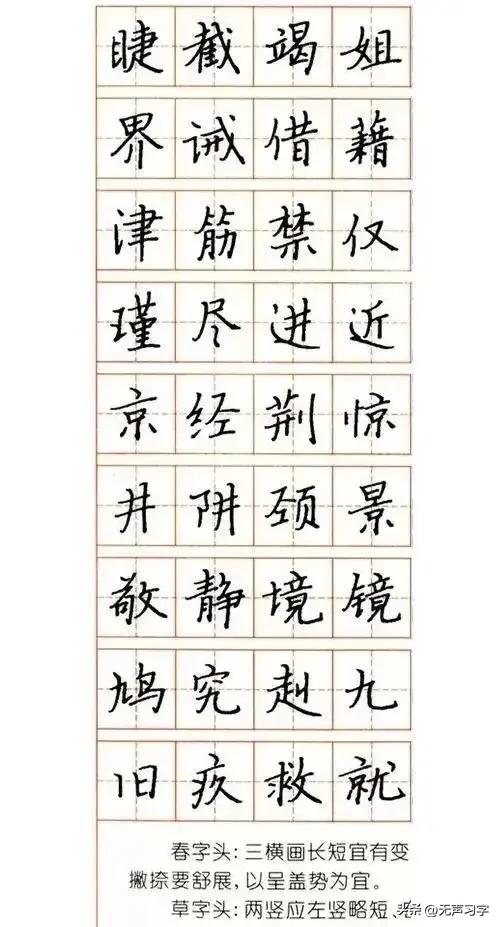 睫截竭姐
界诫借藉
津筋禁仅
瑾尽进近
京经荆惊
井阱颈景
敬静境镜
鸠究赳九
旧疚救就
春字头：三横画长短宜有变
撇捺要舒展，以呈盖势为宜。
草字头：两竖应左竖略短、
头条 @无声习字